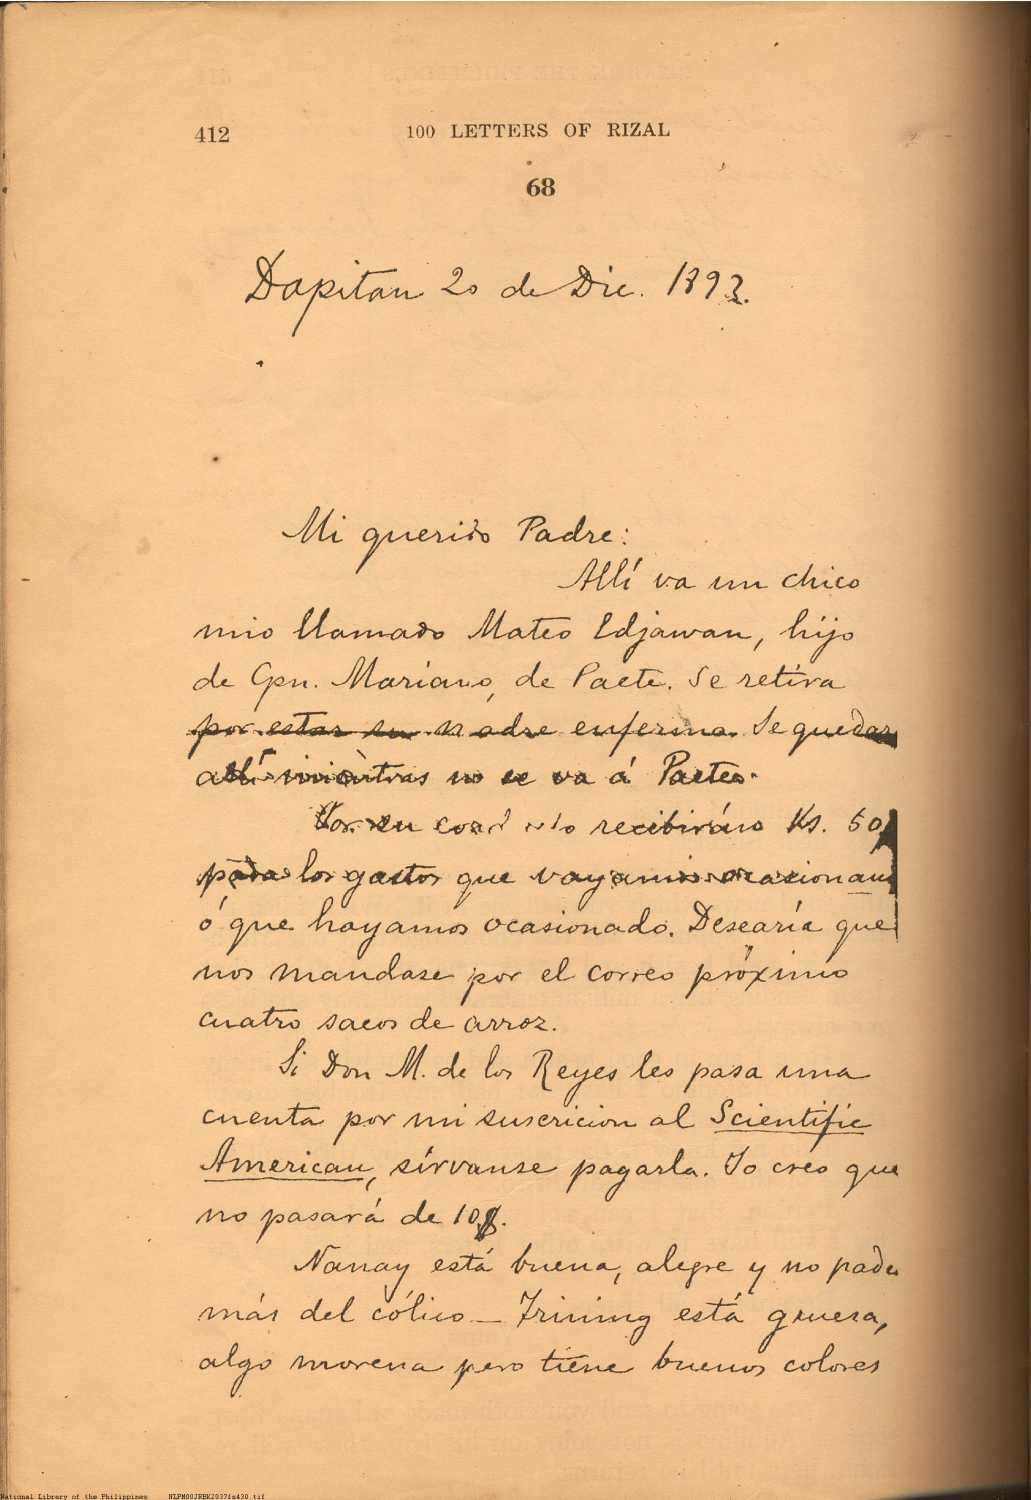 412
100 LETTERS OF RIZAL
68
Dapitan 20 de Dic. 1893.
Mi querido Padre:
Allí va un chico
mio llamado Mateo Edjawan, hijo
de Gpn. Mariano, de Paete. Se retira
por estar su madre enferma. Se quedar
allí mientras no se va á Paete.
Por su recibirán Ks. 50
para los gastos que vayamos ocasionan
ó que hayamos ocasionado. Desearía que
nos mandase por el correo próximo
cuatro sacos de arroz.
Si Don M. de los Reyes les pasa una
cuenta por mi suscricion al Scientific
American, sírvanse pagarla. Yo creo que
no pasará de 10$.
Nanay está buena, alegre y no pade
más del cólico — Trining está gruesa,
algo morena pero tiene buenos colores
National Library of the Philippines